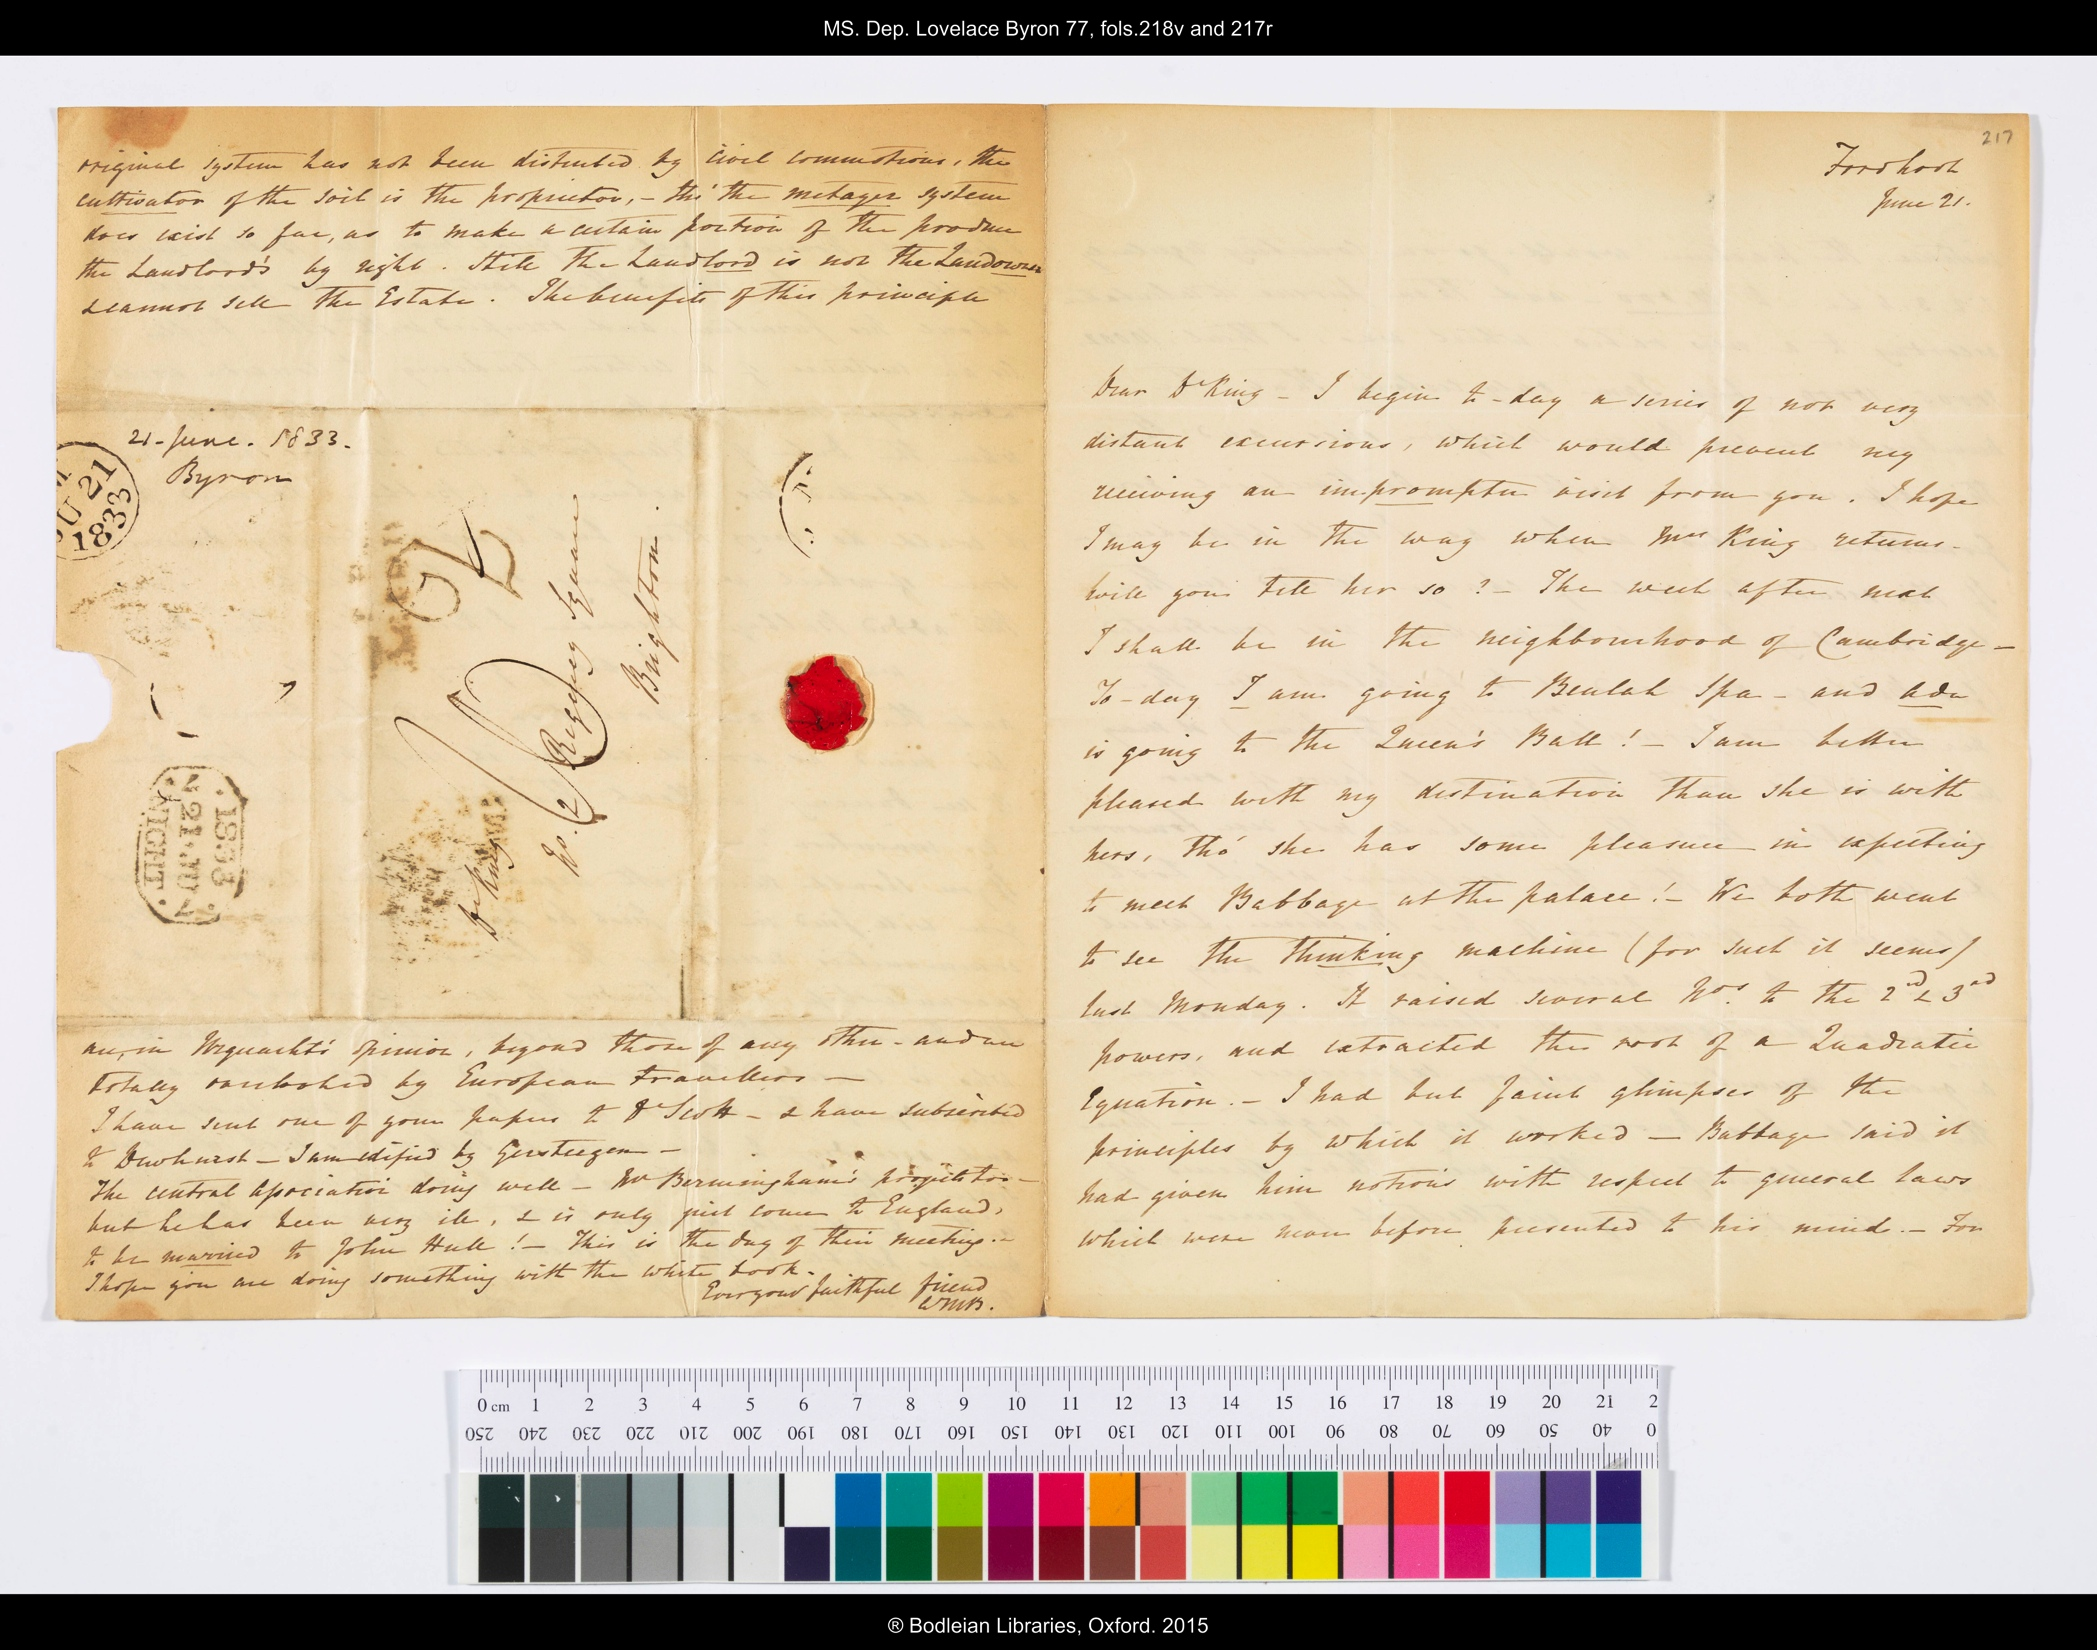 MS. Dep. Lovelace Byron 77, fols.218v and 217r
original system has not been disturbed by civil commotions, the
cultivator of the soil is the proprietor, - tho' the metayer system
does exist so far, as to make a certain portion of the produce
the Landlord's by right. Still the Landlord is not the Landowner
& cannot sell the Estate. The benefits of this principle
21 - June. 1833.
Byron
JU 21
1833
Dr King
No. 2 Regency Square
Brighton.
NIGHT
21 . JU
1833
are, in Urquhart's opinion, beyond those of any other - and are
totally overlooked by European travellers -
I have sent one of your papers to Dr Scott - & have subscribed
to Dewhurst - I am edified by Gersteegen -
The central Association doing well - Mr Bermingham's projects too -
but he has been very ill, & is only just come to England,
to be married to John Hull! - This is the day of their meeting. -
I hope you are doing something with the white book.
Ever your faithful friend
217
Fordhook
June 21.
Dear Dr King - I begin to-day a series of not very
distant excursions, which would prevent my
receiving an impromptu visit from you. I hope
I may be in the way when Mrs King returns -
will you tell her so? - The week after next
I shall be in the neighbourhood of Cambridge -
To-day I am going to Beulah Spa - and Ada
is going to the Queen's Ball! - I am better
pleased with my destination than she is with
hers, tho' she has some pleasure in expecting
to meet Babbage at the palace! - We both went
to see the thinking machine (for such it seems)
last Monday. It raised several Nos. to the 2nd & 3rd
powers, and extracted the root of a Quadratic
Equation. - I had but faint glimpses of the
principles by which it worked - Babbage said it
had given him notions with respect to general laws
which were never before presented to his mind. - For
0 cm 1 2 3 4 5 6 7 8 9 10 11 12 13 14 15 16 17 18 19 20 21 2
250 240 230 220 210 200 190 180 170 160 150 140 130 120 110 100 90 80 70 60 50 40 0
® Bodleian Libraries, Oxford. 2015